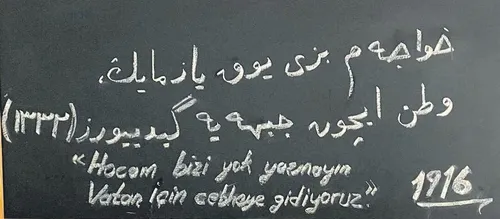 خواجه م بزى يوق يازمايڭ،
وطن ايچون جبهه يه گيدييورز (١٣٣٢)
«Hocam bizi yok yazmayın
Vatan için cepheye gidiyoruz.»
1916